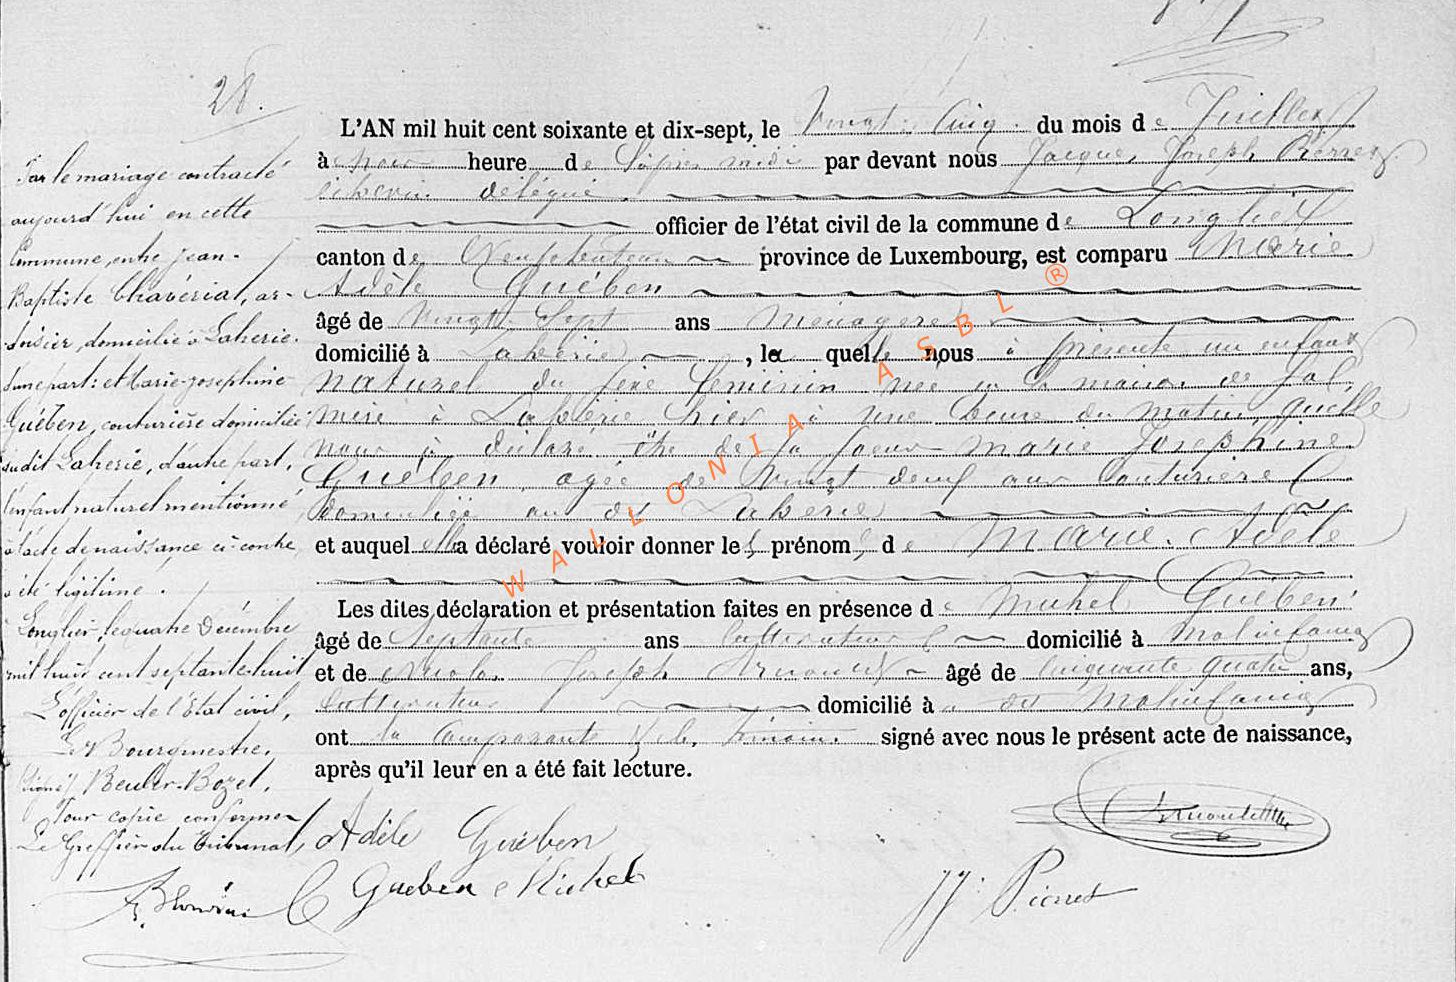 28.
Par le mariage contracté
aujourd'hui en cette
Commune, entre jean-
Baptiste Chavérial, ar-
doisier, domicilié à Laherie.
d'une part: et Marie-josephine
Guében, couturière domiciliée
audit Laherie, d'autre part,
l'enfant naturel mentionné
à l'acte de naissance ci-contre
a été légitimé.
Longlier, le quatre Décembre
mil huit cent septante-huit
L'officier de l'Etat civil,
Le Bourgmestre,
(signé) Beuler-Bozet,
Pour copie conforme
Le Greffier du tribunal,
L'AN mil huit cent soixante et dix-sept, le Vingt Cinq du mois de Juillet
à heure de l'après midi par devant nous Jacques Joseph Pierret
échevin délégué
officier de l'état civil de la commune de Longlier
canton de Neufchateau province de Luxembourg, est comparu Marie
Adèle Guében
âgé de Vingt Sept ans Ménagère
domicilié à Laherie, la quelle nous à présenté un enfant
naturel du sexe feminin née en la maison de
à Laherie hier à une heure du matin quelle
nous à déclaré être de sa soeur Marie Josephine
Guében agée de Vingt deux ans Couturière
domiciliée au dit Laherie
et auquel elle a déclaré vouloir donner les prénoms de Marie. Adèle
Les dites déclaration et présentation faites en présence de Michel Guében
âgé de Septante ans Cultivateur domicilié à Molinfaing
et de Nicolas Joseph Arnould âgé de Cinquante quatre ans,
Cultivateur domicilié à dit Molinfaing
ont la Comparante & les témoins signé avec nous le présent acte de naissance,
après qu'il leur en a été fait lecture.
Adèle Guében
Gueben Michel
Arnould
JJ. Pierret
WALLONIA ASBL ®